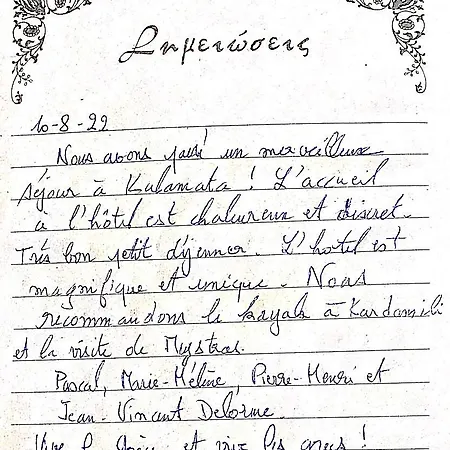 Σημειώσεις
10-8-22
Nous avons passé un merveilleux
séjour à Kalamata ! L'accueil
à l'hôtel est chaleureux et discret.
Très bon petit déjeuner. L'hotel est
magnifique et unique. Nous
recommandons le kayak à Kardamili
et la visite de Mystras.
Pascal, Marie-Hélène, Pierre-Henri et
Jean-Vincent Delorme.
Vive la Grèce et vive les grecs !